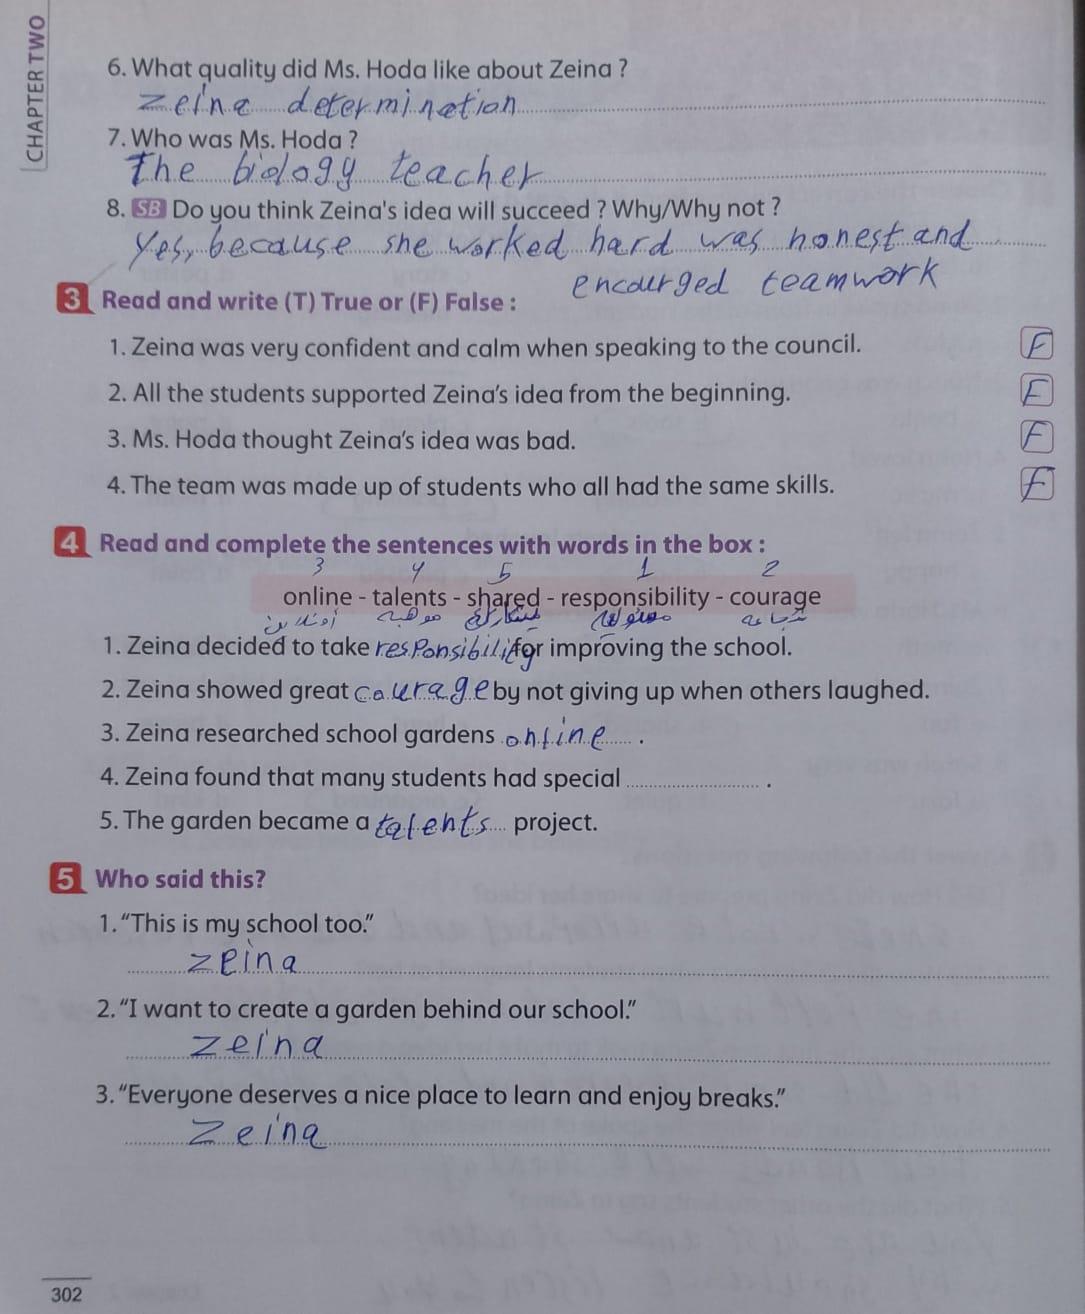 CHAPTER TWO
6. What quality did Ms. Hoda like about Zeina ?
zeina determination
7. Who was Ms. Hoda ?
The biology teacher
8. SB Do you think Zeina's idea will succeed ? Why/Why not ?
Yes, because she worked hard was honest and
encourged teamwork
3 Read and write (T) True or (F) False :
1. Zeina was very confident and calm when speaking to the council. F
2. All the students supported Zeina's idea from the beginning. F
3. Ms. Hoda thought Zeina's idea was bad. F
4. The team was made up of students who all had the same skills. F
4 Read and complete the sentences with words in the box :
3 4 5 1 2
online - talents - shared - responsibility - courage
أونلاين موهبة مشاركة مسئولية شجاعة
1. Zeina decided to take responsibility for improving the school.
2. Zeina showed great courage by not giving up when others laughed.
3. Zeina researched school gardens online .
4. Zeina found that many students had special .
5. The garden became a talents project.
5 Who said this?
1. “This is my school too.”
zeina
2. “I want to create a garden behind our school.”
zeina
3. “Everyone deserves a nice place to learn and enjoy breaks.”
Zeina
302